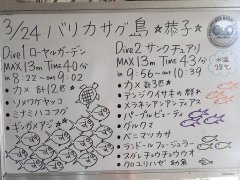 3/24 バリカサグ島 ☆恭子☆
Dive1 ローヤルガーデン
MAX13m Time40分
in 8:22〜out 9:02
・カメ 計12匹
・ソメワケヤッコ
・ミナミハコフグ
・ギンガメアジ
Dive2 サンクチュアリ
MAX13m Time43分
in 9:56〜out 10:39
水温
28℃
・カメ 計3匹
・テングカワハギの群れ
・メラネシアンアンティアス
・パープルビューティ
・グルクマ
・ベニマツカサ
・ランドールフュージラー
・スダレチョウチョウウオ
・クロユリハゼ 幼魚